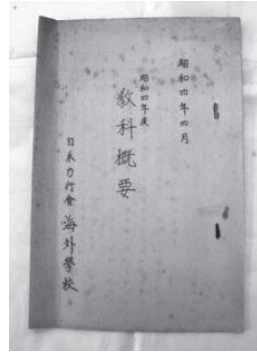 昭和四年四月
昭和四年度
教科概要
日本力行會 海外學校